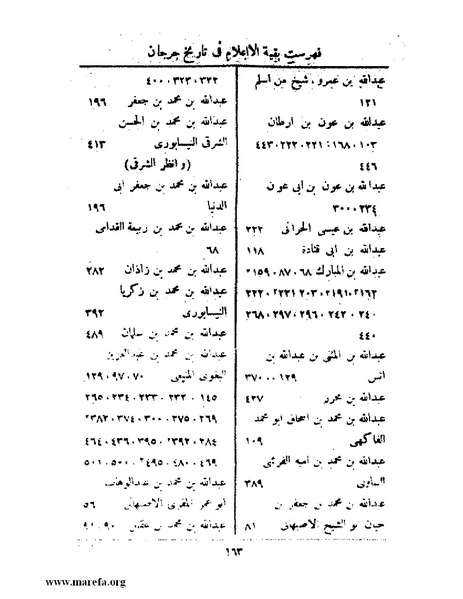 فهرست بقية الااعلام فى تاريخ جرجان
عبدالله بن عمرو، شيخ من اسلم
١٢١
عبدالله بن عون بن ارطان
١٠٣، ١٦٨، ٢٢١، ٢٢٢، ٤٤٣
٤٤٦
عبدالله بن عون بن ابى عون
٢٣٤، ٣٠٠
عبدالله بن عيسى الحرانى ٢٢٢
عبدالله بن ابى قتادة ١١٨
عبدالله بن المبارك ٦٨، ٨٧، ١٥٩
١٦٢، ١٩١، ٢٠٣، ٢٢١، ٢٢٢
٢٤٠، ٢٤٢، ٢٩٦، ٢٩٧، ٢٦٨
٤٤٠
عبدالله بن المثنى بن عبدالله بن
انس ١٢٩، ٣٧٠
عبدالله بن محرر ٤٢٧
عبدالله بن محمد بن اسحاق ابو محمد
الفاكهى ١٠٩
عبدالله بن محمد بن
٣٨٩
عبدالله بن محمد بن جعفر بن
حيان ابو الشيخ الاصبهانى ٨١
٣٢٢، ٣٢٣، ٤٠٠
عبدالله بن محمد بن جعفر ١٩٦
عبدالله بن محمد بن الحسن
الشرقى النيسابورى ٤١٣
(و انظر الشرقى)
عبدالله بن محمد بن جعفر ابى
الدنيا ١٩٦
عبدالله بن محمد بن ربيعة القدامى
٦٨
عبدالله بن محمد بن زاذان ٢٨٢
عبدالله بن محمد بن زكريا
النيسابورى ٣٩٢
عبدالله بن محمد بن سلمان ٤٨٩
عبدالله بن محمد بن عبدالعزيز
البغوى المنيعى ٧٠، ٩٧، ١٢٩
١٤٥، ٢٣٢، ٢٣٣، ٢٣٤، ٢٦٥
٢٦٩، ٢٧٥، ٣٠٠، ٣٧٤، ٣٨٢
٢٨٤، ٣٩٢، ٣٩٥، ٤٣٦، ٤٦٤
٤٦٩، ٤٨٠، ٤٩٥، ٥٠٠، ٥٠١
عبدالله بن محمد بن عبدالوهاب
ابو عمر المقرى الاصبهانى ٥٦
عبدالله بن محمد بن عقيل ٩٠، ٩١
١٦٣
www.marefa.org